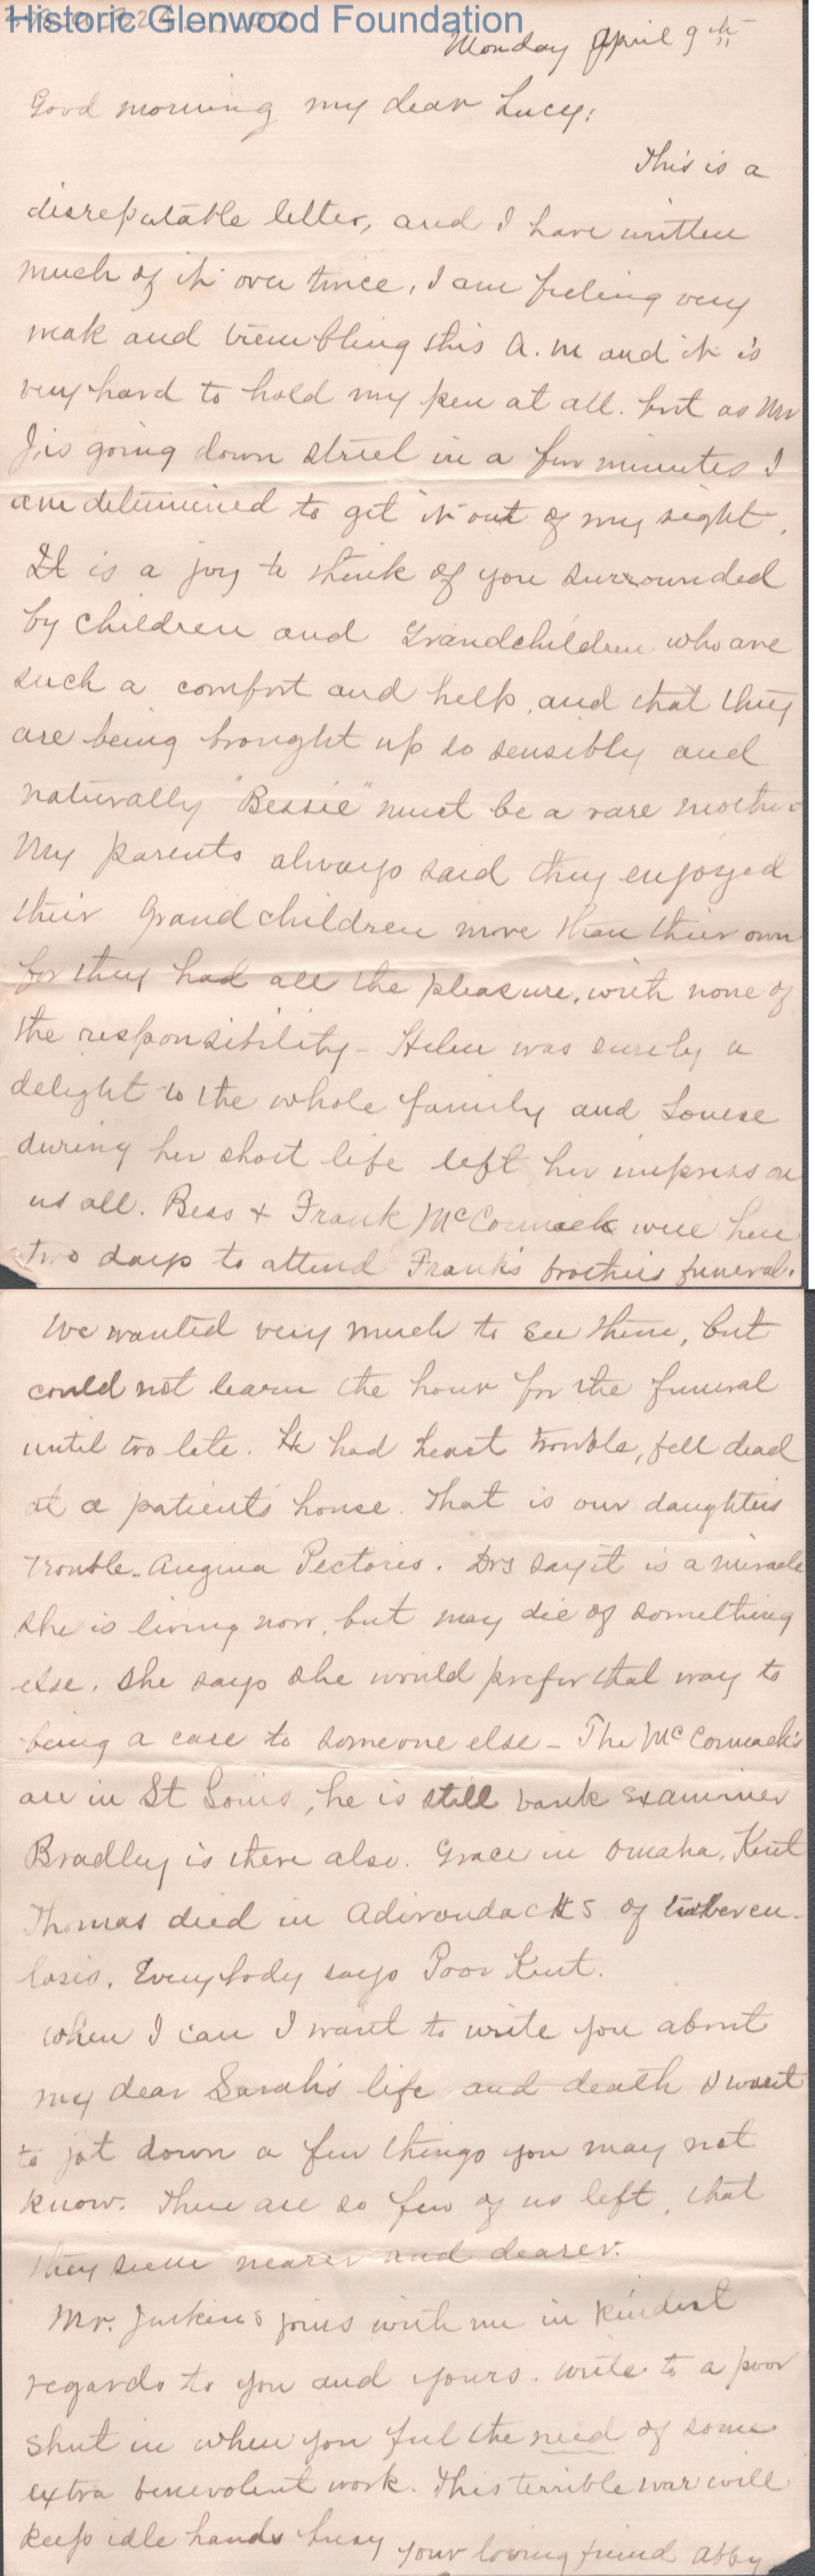 Historic Glenwood Foundation
Monday April 9th
Good morning my dear Lucy:
This is a
disreputable letter, and I have written
much of it over twice, I am feeling very
weak and trembling this A.M and it is
very hard to hold my pen at all. but as Mr
J. is going down street in a few minutes I
am determined to get it out of my sight.
It is a joy to think of you surrounded
by children and Grandchildren who are
such a comfort and help, and that they
are being brought up so sensibly and
naturally "Bessie" must be a rare mother
My parents always said they enjoyed
their Grand children more than their own
for they had all the pleasure, with none of
the responsibility - Helen was surely a
delight to the whole family and Louise
during her short life left her impress on
us all. Bess + Frank McCormack were here
two days to attend Frank's brothers funeral.
We wanted very much to see them, but
could not learn the hour for the funeral
until too late. He had heart trouble, fell dead
at a patients house. That is our daughters
trouble - Angina Pectoris. Drs say it is a miracle
she is living now, but may die of something
else. She says she would prefer that way to
being a care to someone else - The McCormack's
are in St Louis, he is still bank examiner
Bradley is there also. Grace in Omaha. Kent
Thomas died in Adirondacks of tubercu-
losis. Everybody says Poor Kent.
When I can I want to write you about
my dear Sarah's life and death I want
to jot down a few things you may not
know. There are so few of us left, that
they seem nearer and dearer.
Mr. Junkins joins with me in kindest
regards to you and yours. Write to a poor
shut in when you feel the need of some
extra benevolent work. This terrible war will
keep idle hands busy your loving friend Abby